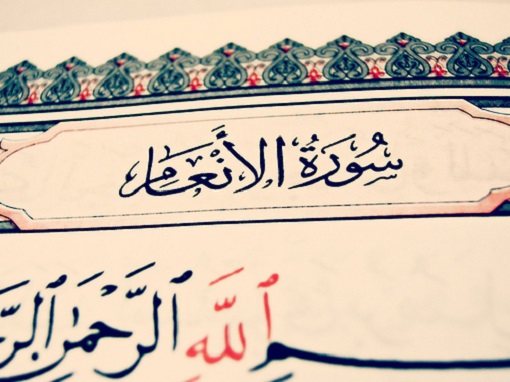 سُورَةُ الأَنْعَامِ
ـمِ ٱللَّهِ ٱلرَّحْمَٰنِ ٱلرَّ